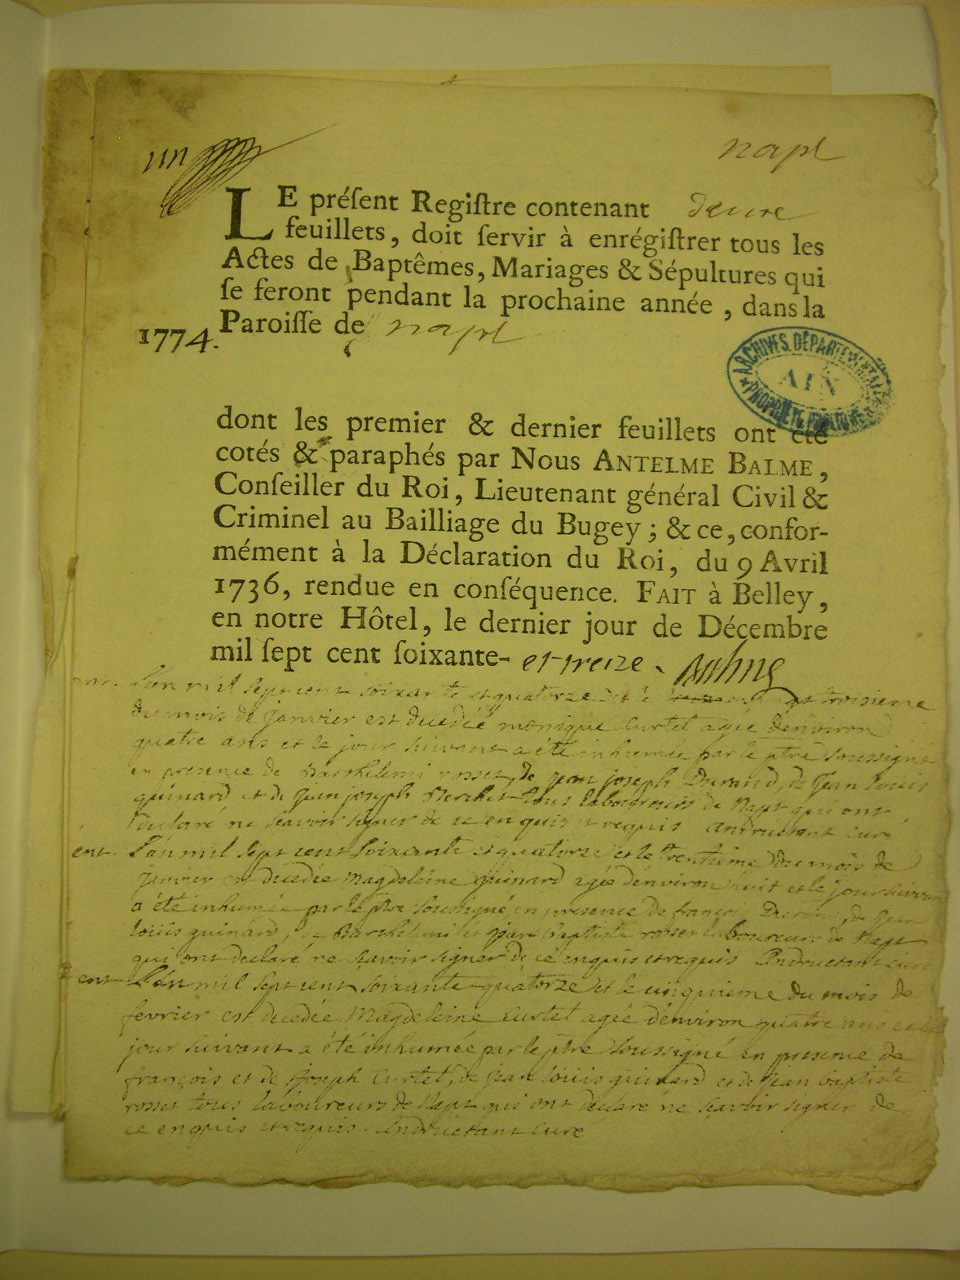 un
napt
LE préſent Regiſtre contenant
feuillets, doit ſervir à enrégiſtrer tous les
Actes de Baptêmes, Mariages & Sépultures qui
ſe feront pendant la prochaine année, dans la
1774. Paroiſſe de napt
ARCHIVES DÉPARTEMENTALES
AIN
PROPRIÉTÉ PUBLIQUE
dont les premier & dernier feuillets ont été
cotés & paraphés par Nous ANTELME BALME,
Conſeiller du Roi, Lieutenant général Civil &
Criminel au Bailliage du Bugey; & ce, confor-
mément à la Déclaration du Roi, du 9 Avril
1736, rendue en conſéquence. FAIT à Belley,
en notre Hôtel, le dernier jour de Décembre
mil ſept cent ſoixante- et treize. Balme
L'an mil sept cent soixante et quatorze et le troisieme
du mois de janvier est decedéé monique Curtet agee denviron
quatre ans et le jour suivant a été inhumée par le ptre soussigné
en presence de Barthelemi rosset, de jean joseph Durand, de jean louis
guinard et de jean joseph tous laboureurs de Napt qui ont
declaré ne sçavoir signer de ce enquis et requis curé
ent. L'an mil sept cent soixante et quatorze et le trentieme du mois de
janvier est decedée Magdeleine guinard agée denviron huit et le jour suivant
a été inhumée par le ptre soussigné en presence de françois de jean
louis guinard, de Barthelemi et jean Baptiste rosset laboureurs de Napt
qui ont declaré ne sçavoir signer de ce enquis et requis curé
ent L'an mil sept cent soixante quatorze et le cinquieme du mois de
fevrier est decedée Magdeleine curtet agée denviron quatre ans et le
jour suivant a été inhumée par le ptre soussigné en presence de
françois et de joseph Curtet, de jean louis guinard et de jean baptiste
rosset tous laboureurs de Napt qui ont declaré ne sçavoir signer de
ce enquis et requis. curé